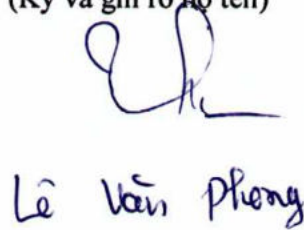 (Ký và ghi rõ họ tên)
Lê Văn Phong